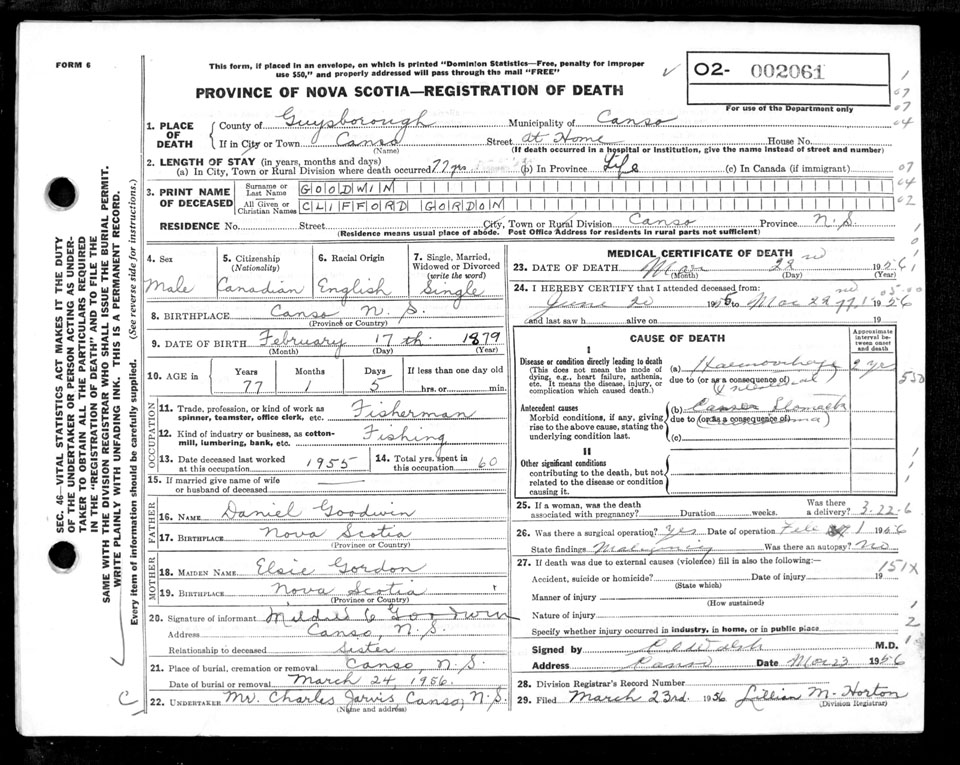 FORM 6
This form, if placed in an envelope, on which is printed "Dominion Statistics—Free, penalty for improper
use $50," and properly addressed will pass through the mail "FREE"
O2- 002061
For use of the Department only
PROVINCE OF NOVA SCOTIA—REGISTRATION OF DEATH
SEC. 46—VITAL STATISTICS ACT MAKES IT THE DUTY
OF THE UNDERTAKER OR PERSON ACTING AS UNDER-
TAKER TO OBTAIN ALL THE PARTICULARS REQUIRED
IN THE "REGISTRATION OF DEATH" AND TO FILE THE
SAME WITH THE DIVISION REGISTRAR WHO SHALL ISSUE THE BURIAL PERMIT.
WRITE PLAINLY WITH UNFADING INK. THIS IS A PERMANENT RECORD.
Every item of information should be carefully supplied. (See reverse side for instructions.)
1. PLACE OF DEATH County of Guysborough Municipality of Canso
If in City or Town Canso Street at Home House No.
(Name) (If death occurred in a hospital or institution, give the name instead of street and number)
2. LENGTH OF STAY (in years, months and days)
(a) In City, Town or Rural Division where death occurred 77 yrs (b) In Province Life (c) In Canada (if immigrant)
3. PRINT NAME OF DECEASED Surname or Last Name GOODWIN
All Given or Christian Names CLIFFORD GORDON
RESIDENCE No. Street City, Town or Rural Division Canso Province N.S.
(Residence means usual place of abode. Post Office Address for residents in rural parts not sufficient)
4. Sex 5. Citizenship (Nationality) 6. Racial Origin 7. Single, Married, Widowed or Divorced (write the word)
Male Canadian English Single
8. BIRTHPLACE Canso N. S.
(Province or Country)
9. DATE OF BIRTH February 17 th. 1879
(Month) (Day) (Year)
10. AGE in Years Months Days If less than one day old
77 1 5 hrs. or min.
OCCUPATION
11. Trade, profession, or kind of work as spinner, teamster, office clerk, etc. Fisherman
12. Kind of industry or business, as cotton-mill, lumbering, bank, etc. Fishing
13. Date deceased last worked at this occupation 1955 14. Total yrs. spent in this occupation 60
15. If married give name of wife or husband of deceased —
FATHER
16. NAME Daniel Goodwin
17. BIRTHPLACE Nova Scotia
(Province or Country)
MOTHER
18. MAIDEN NAME Elsie Gordon
19. BIRTHPLACE Nova Scotia
(Province or Country)
20. Signature of informant Goodwin
Address Canso, N. S.
Relationship to deceased Sister
21. Place of burial, cremation or removal Canso, N. S.
Date of burial or removal March 24, 1956.
22. UNDERTAKER Mr. Charles Jarvis, Canso, N. S.
(Name and address)
MEDICAL CERTIFICATE OF DEATH
23. DATE OF DEATH Mar 22 1956
(Month) (Day) (Year)
24. I HEREBY CERTIFY that I attended deceased from:
June 20 to Mar 22 1956
and last saw h alive on 19
CAUSE OF DEATH
Approximate interval between onset and death
I
Disease or condition directly leading to death
(This does not mean the mode of dying, e.g., heart failure, asthenia, etc. It means the disease, injury, or complication which caused death.)
(a) Haemorrhage
due to (or as a consequence of)
Antecedent causes
Morbid conditions, if any, giving rise to the above cause, stating the underlying condition last.
(b) Cancer Stomach
due to (or as a consequence of)
(c)
II
Other significant conditions
contributing to the death, but not related to the disease or condition causing it.
25. If a woman, was the death associated with pregnancy? Duration weeks. Was there a delivery? 3-22-6
26. Was there a surgical operation? Yes Date of operation 1956
State findings Malignancy Was there an autopsy? No
27. If death was due to external causes (violence) fill in also the following:—
151X
Accident, suicide or homicide? Date of injury 19
(State which)
Manner of injury
(How sustained)
Nature of injury
Specify whether injury occurred in industry, in home, or in public place
Signed by M.D.
Address Canso Date Mar 23 1956
28. Division Registrar's Record Number
29. Filed March 23rd. 1956 Lillian M. Horton
(Division Registrar)